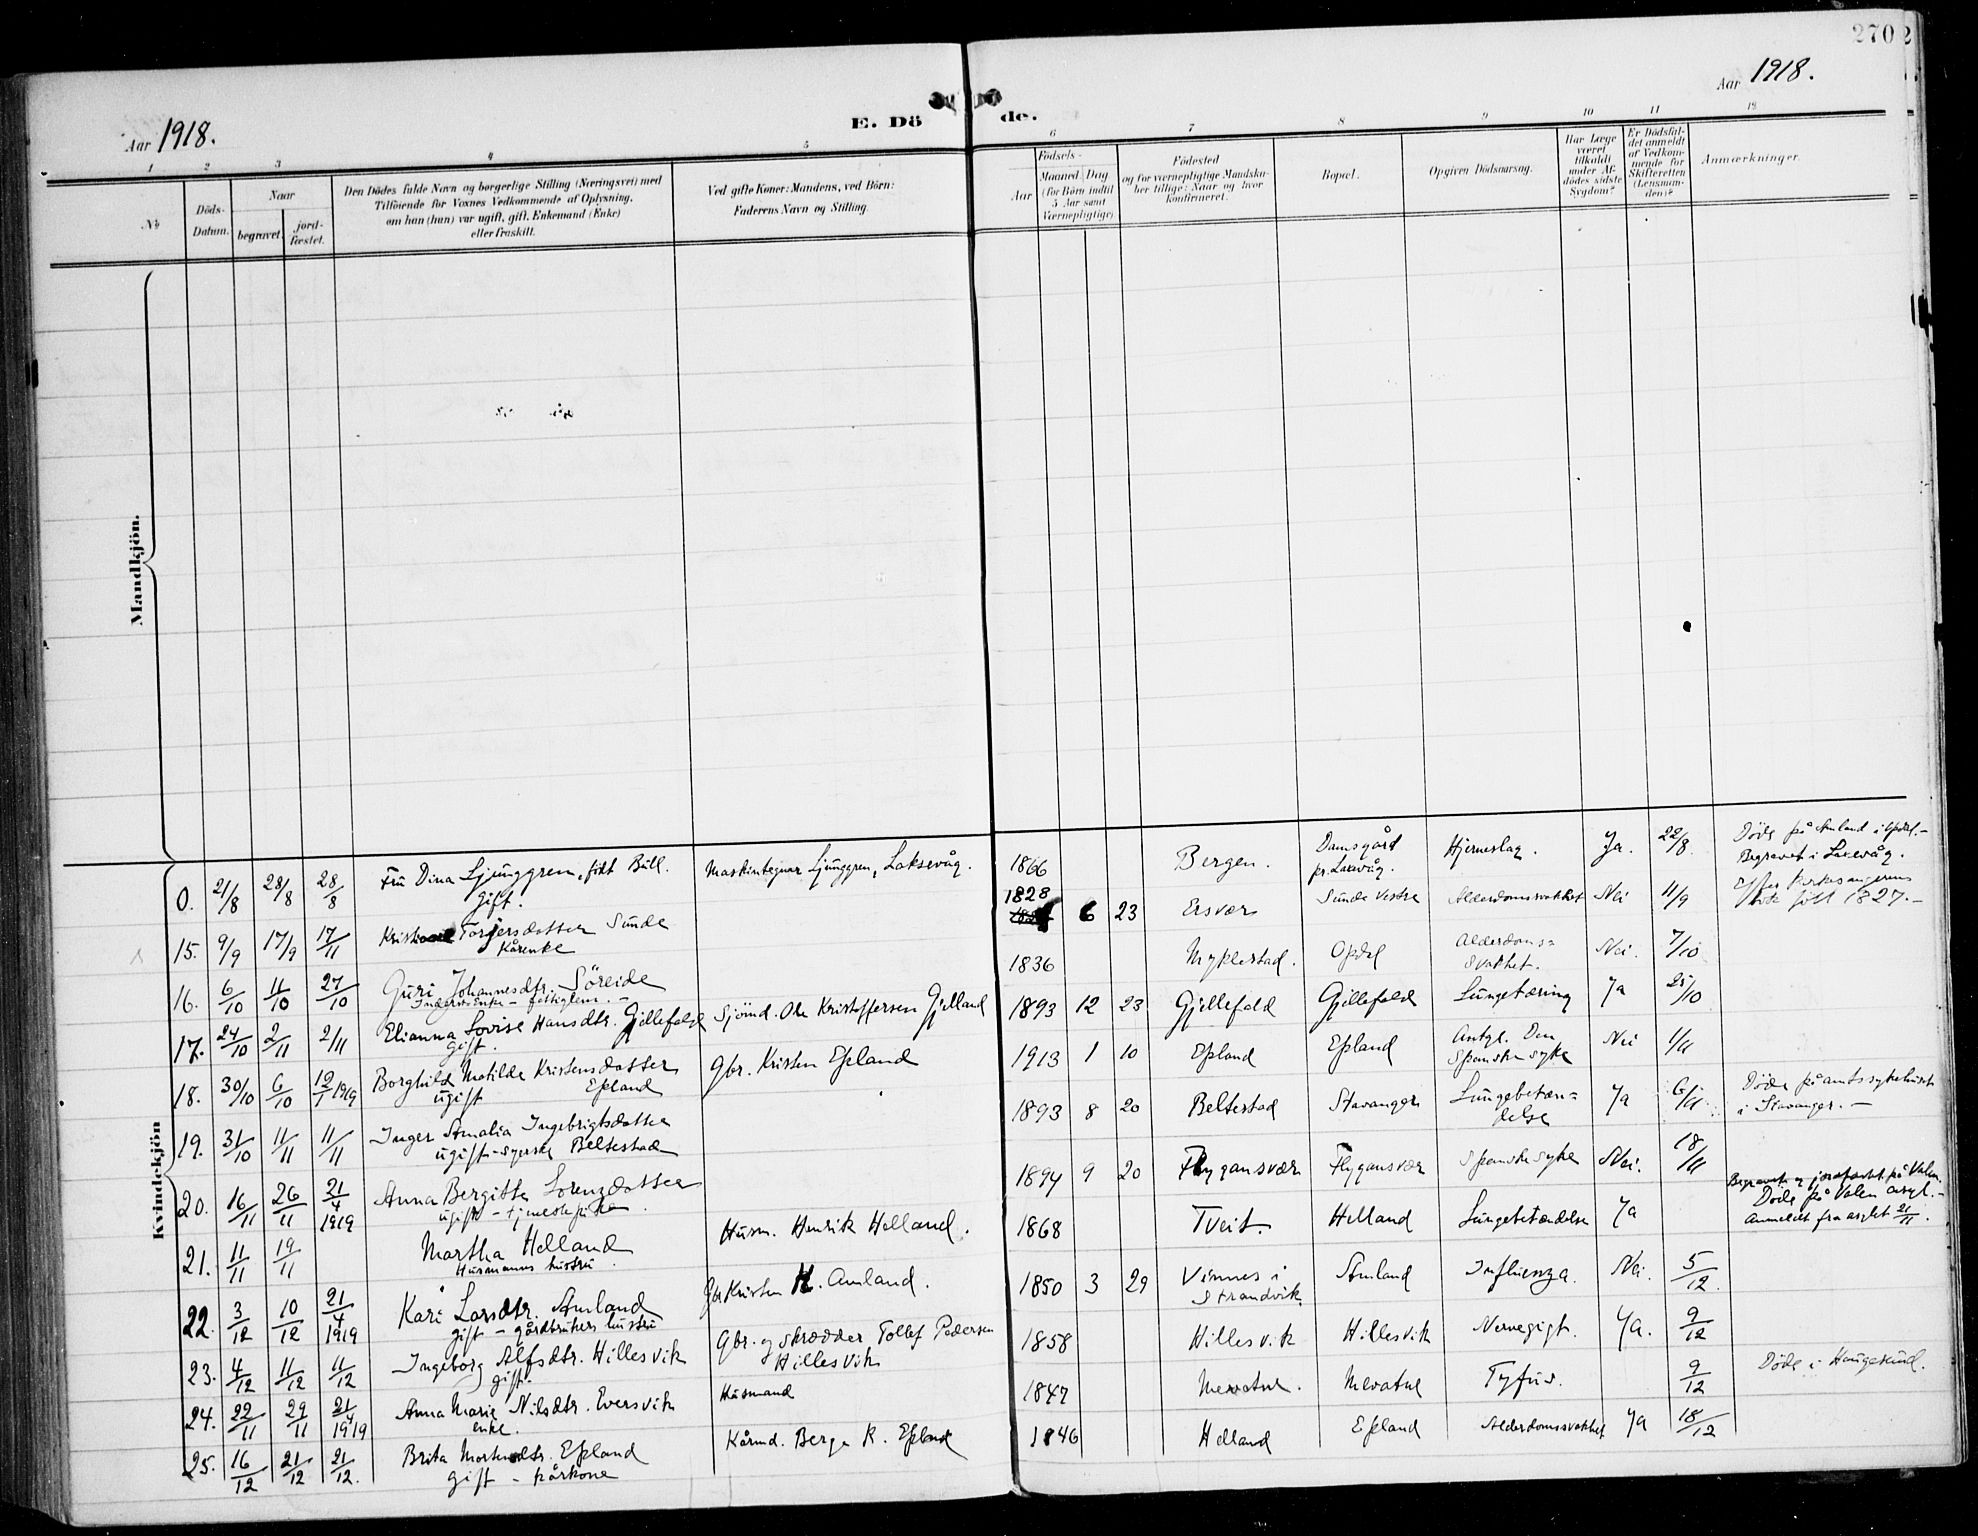 270
Aar 1918.
Aar 1918.
E. Døde.
1 2 3 4 5 6 7 8 9 10 11 12
No
Döds-Datum.
Naar
begravet.
jord-fæstet.
Den Dödes fulde Navn og borgerlige Stilling (Næringsvei) med
Tilföiende for Voxnes Vedkommende af Oplysning,
om han (hun) var ugift, gift, Enkemand (Enke)
eller fraskilt.
Ved gifte Koner: Mandens, ved Börn:
Faderens Navn og Stilling.
Födsels-
Aar
Maaned. Dag
(for Börn indtil
5 Aar samt
Værnepligtige)
Födested
og for værnepligtige Mandska-
ber tillige: Naar og hvor
konfirmeret.
Bopæl.
Opgiven Dödsaarsag.
Har Læge
været
tilkaldt
under Af-
dödes sidste
Sygdom?
Er Dödsfal-
det anmeldt
af Vedkom-
mende for
Skifteretten
(Lensman-
den)?
Anmærkninger.
Mandkjön.
Kvindekjön
0. 21/8 28/8 28/8 Fru Dina Ljunggren, født Bull. Maskintegner Ljunggren, Laksevåg. 1866 Bergen. Damsgård Hjerneslag. Ja. 22/8 Døde på Amland i Opdal.-
gift. pr. Laksevåg. Begravet i Laksevåg.
15. 9/9 17/9 17/11 Torgersdatter Sunde 1828 6 23 Ersvær Sunde vestre Alderdomssvakhet Nei 11/9 Efter kirkesangerens
Kårenke født 1827.-
16. 6/10 11/10 27/10 Guri Johannesdtr. Söreide 1836 Myklestad. Opdal Alderdoms= Nei. 7/10
svakhet.
17. 24/10 2/11 2/11 Elianna Lovise Hansdtr. Gjellefald Sjömd. Ole Kristoffersen Gjelland 1893 12 23 Gjellefald Gjellefald Lungetæring Ja 25/10
gift.
18. 30/10 6/10 19/1 1919 Borghild Matilde Kristensdatter Gbr. Kristen Epland 1913 1 10 Epland Epland Antgl. Den Nei 1/11
ugift Epland Spanske syke
19. 31/10 11/11 11/11 Inger Amalia Ingebrigtsdatter 1893 8 20 Beltestad Stavanger Lungebetæn= Ja 6/11 Døde på amtssykehuset
ugift-syerske Beltestad delse i Stavanger.-
20. 16/11 26/11 21/4 1919 Anna Bergitta Lorenzdatter 1894 9 20 Flygansvær Flygansvær Spanskesyke Nei. 18/11
ugift - tjenestepike.
21. 11/11 19/11 Martha Helland Husm. Henrik Helland. 1868 Tveit. Helland Lungebetændelse Ja Begravet og jordfæstet på Valen.
Husmanns hustru. Døde på Valen asyl.-
Anmeldt fra asylet 21/11.
22. 3/12 10/12 21/4 1919 Kari Larsdtr. Amland Gbr Kristen H. Amland. 1850 3 29 Vinnes i Amland Influenza. Nei. 5/12.
gift - gårdbrukers hustru Strandvik
23. 4/12 11/12 11/12 Ingeborg Alfsdtr. Hillesvik Gbr. og skrædder Tollef Pedersen 1858 Hillesvik Hillesvik Nervegigt. Ja. 9/12
gift. Hillesvik
24. 22/11 29/11 21/4 1919 Anna Marie Nilsdtr. Eversvik Husmand 1847 Mevatne. Mevatne Tyfus. 9/12 Døde i Haugesund.
enke.
25. 16/12 21/12 21/12. Brita Mortensdtr. Epland Kårmd. Berge K. Epland 1846 Helland Epland Alderdomssvakhet Ja 18/12
gift - kårkone